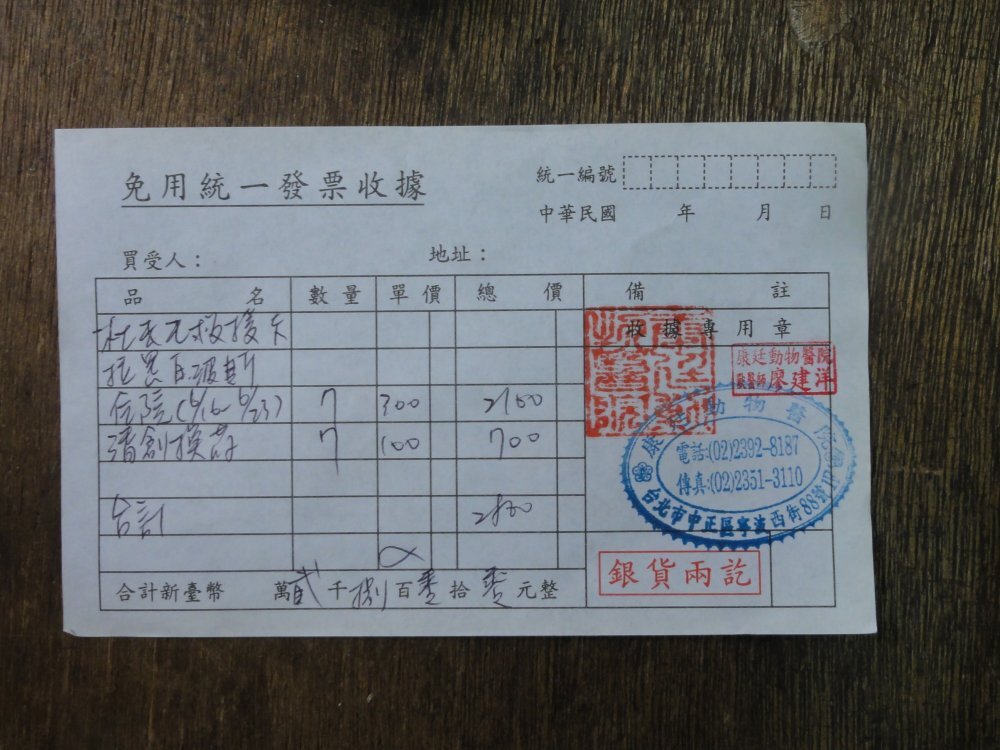 免用統一發票收據
統一編號
中華民國 年 月 日
買受人： 地址：
品名 數量 單價 總價 備註
收據專用章
住院(6/16-6/23) 7 300 2100
清創換葯 7 100 700
合計 2800
合計新臺幣 萬貳千捌百零拾零元整
康廷動物醫院
獸醫師 廖建洋
康廷動物醫院
電話:(02)2392-8187
傳真:(02)2351-3110
台北市中正區寧波西街88號
銀貨兩訖